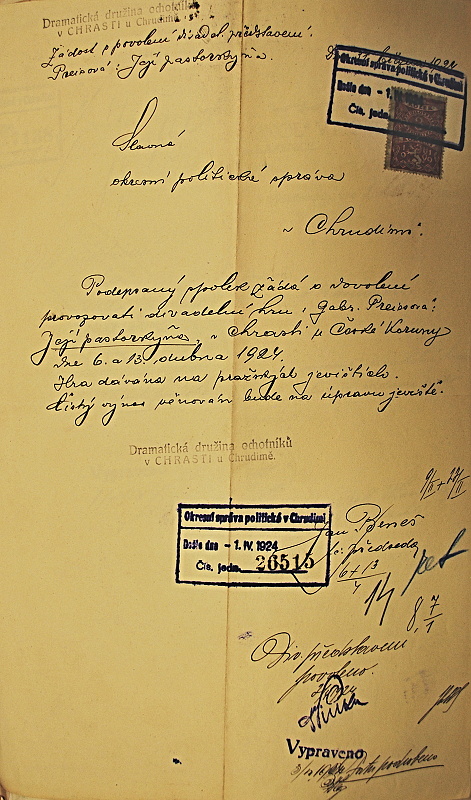 Dramatická družina ochotníků
v CHRASTI u Chrudimě.
Žádost o povolení divadel. představení.
Preissová: Její pastorkyňa.
Okresní správa politická v Chrudimi
Došlo dne - 1.
Čís. jedn.
Slavná
okresní politická správa
v Chrudimi.
Podepsaný spolek žádá o dovolení
provozovati divadelní hru, Gabr. Preissová:
Její pastorkyňa, v Chrasti u České Koruny
dne 6. a 13. dubna 1924.
Hra dávána na pražských jevištích.
Čistý výnos věnován bude na úpravu jeviště.
Dramatická družina ochotníků
v CHRASTI u Chrudimě.
Okresní správa politická v Chrudimi
Došlo dne - 1. IV. 1924
Čís. jedn. 26515
Jan Beneš
předseda
6 + 13
4
14
8, 7/1
Div. představení
povoleno.
Vypraveno